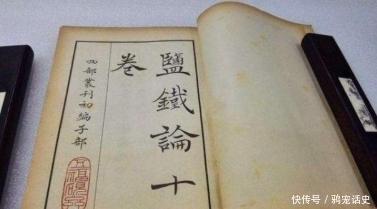 鹽鐵論十
卷
四部叢刊初編子部
快传号／鸦宠话史